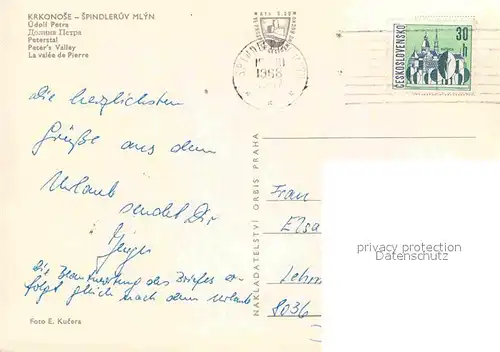 KRKONOŠE – ŠPINDLERŮV MLÝN
Údolí Petra
Долина Петра
Peterstal
Peter's Valley
La valée de Pierre
1968
ČESKOSLOVENSKO
30
h
die herzlichsten
Grüße aus dem
Urlaub
sendet Dir
Die Beantwortung des Briefes er-
folgt gleich nach dem Urlaub
Foto E. Kučera
NAKLADATELSTVÍ ORBIS PRAHA
Frau
Elsa
8036
privacy protection
Datenschutz